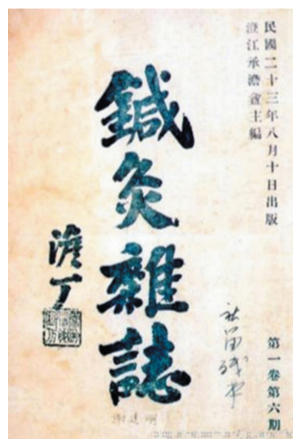 民國二十三年八月十日出版
澄江承澹盦主編
鍼灸雜誌
澹丁
第一卷第六期